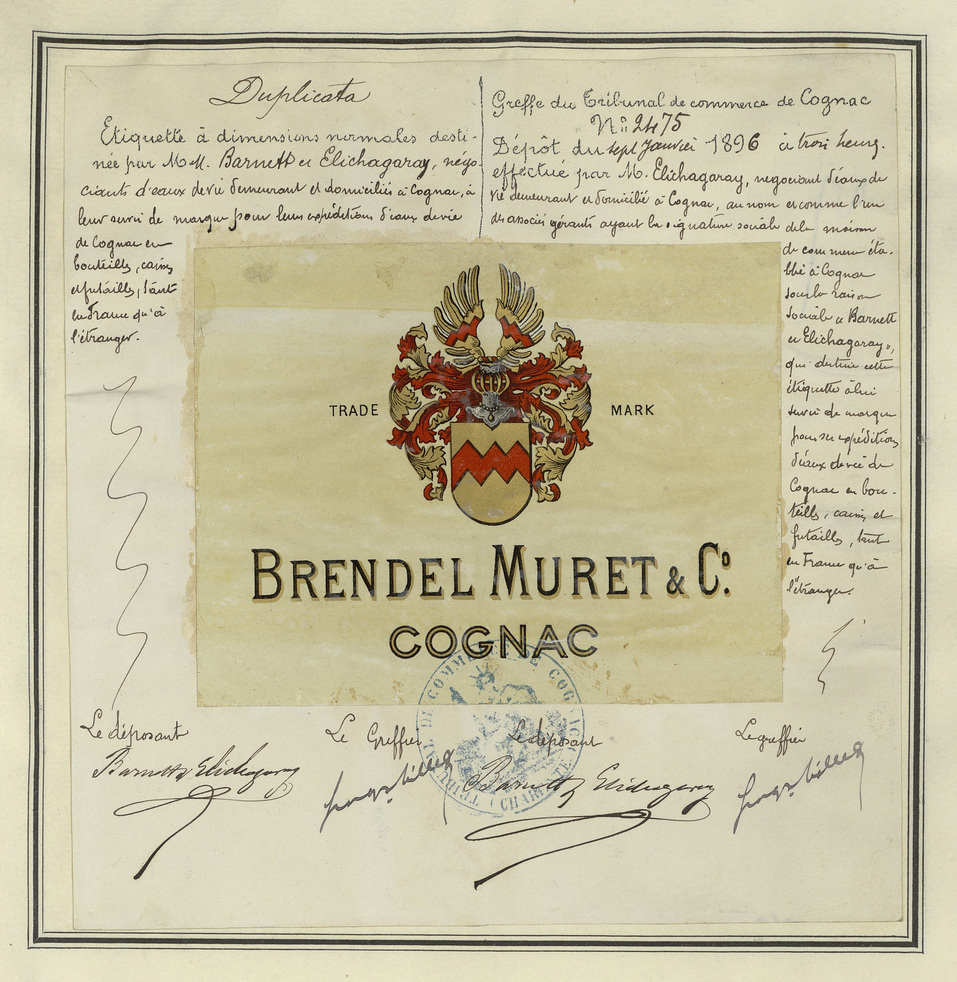 Duplicata
Etiquette à dimensions normales desti-
née par M.M. Barnett et Elichagaray, négo-
ciants d'eaux de vie demeurant et domiciliés à Cognac, à
leur servir de marque pour leurs expéditions d'eaux de vie
de Cognac en
bouteilles, caisses
et futailles, tant
en France qu'à
l'étranger.
Greffe du Tribunal de commerce de Cognac
No 2475
Dépôt du sept Janvier 1896 à trois heures.
effectué par M. Elichagaray, negociant d'eaux de
vie demeurant et domicilié à Cognac, au nom et comme l'un
des associés gérants ayant la signature sociale de la maison
de commerce éta-
blie à Cognac
sous la raison
sociale « Barnett
et Elichagaray »,
qui destine cette
étiquette à lui
servir de marque
pour ses expéditions
d'eaux de vie de
Cognac en bou-
teilles, caisses et
futailles, tant
en France qu'à
l'étranger.
TRADE MARK
BRENDEL MURET & Co.
COGNAC
TRIBUNAL DE COMMERCE DE COGNAC
(CHARENTE)
Le déposant
Barnett & Elichagaray
Le Greffier
Le déposant
Barnett & Elichagaray
Le greffier